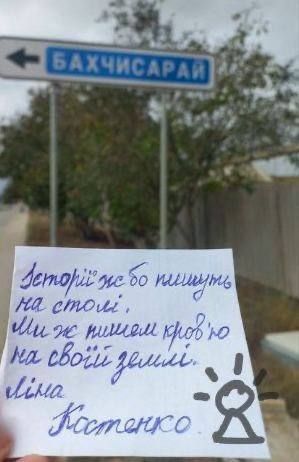 БАХЧИСАРАЙ
Історії ж бо пишуть
на столі.
Ми ж пишем кров'ю
на своїй землі.
Ліна
Костенко.